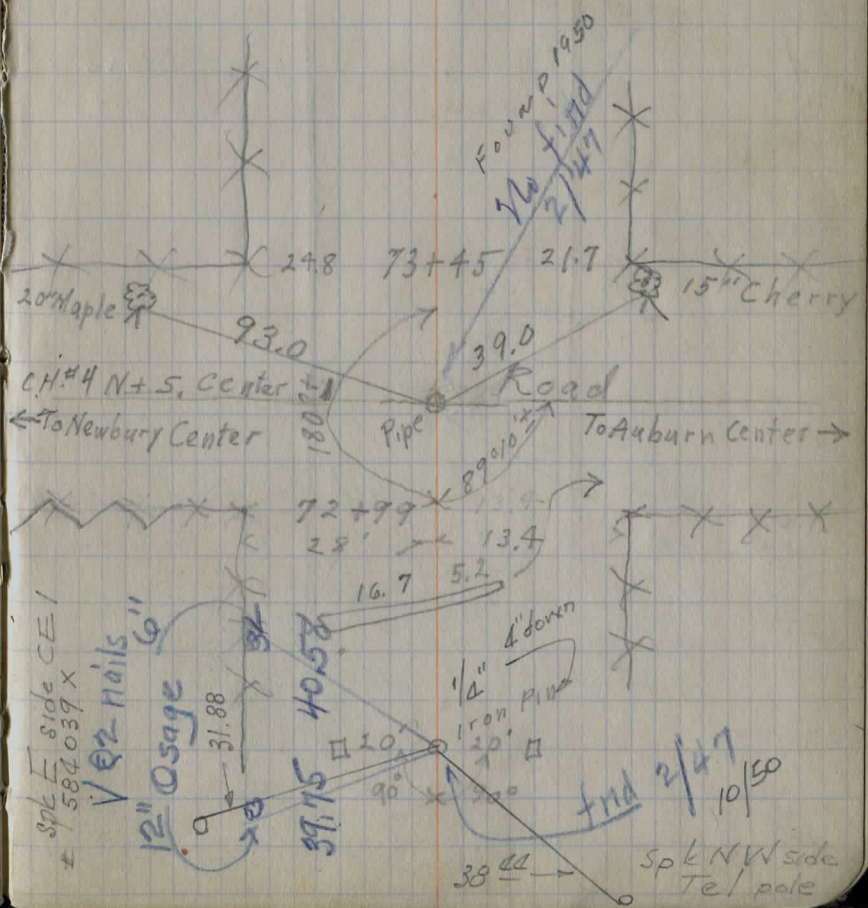 Found 1950
No find
2/47
24.8 73+45 21.7
20" Maple
15" Cherry
93.0
39.0
C.H. #4 N+S. Center Road
180°±
Pipe
←To Newbury Center
To Auburn Center →
89°10'±
72+99 13.4
28' 13.4
16.7 5.2
1/4" 4" down
Iron Pin
Spk E side CEI
# 584039 X
√ @ 2 nails
12" Osage 6"
31.88
39.75 40.58
20' 20'
90° 90°
fnd 2/47
10/50
38 44
Spk NW side
Tel pole